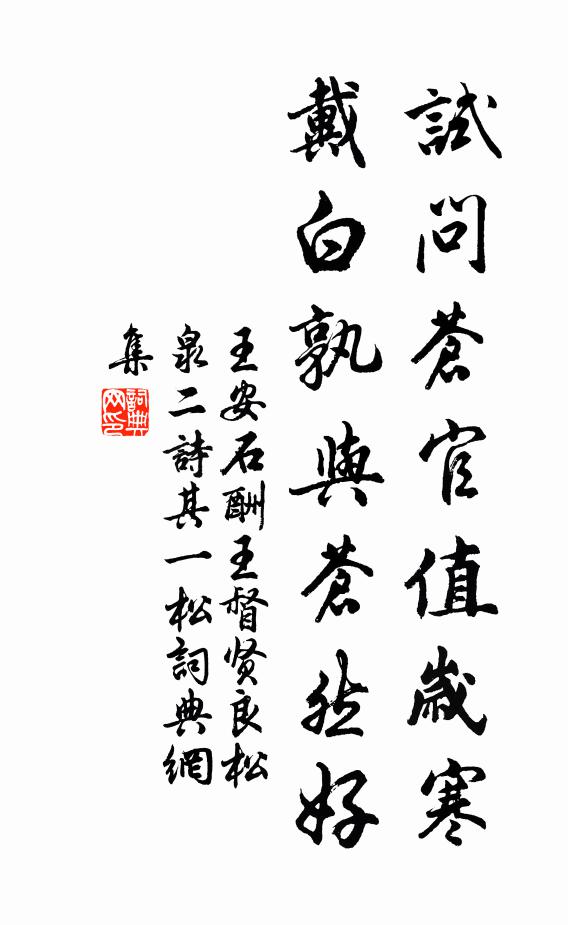 試問蒼官值歲寒
戴白孰與蒼然好
王安石酬王督贤良松
泉二詩其一松詞典網
集
詞典网印